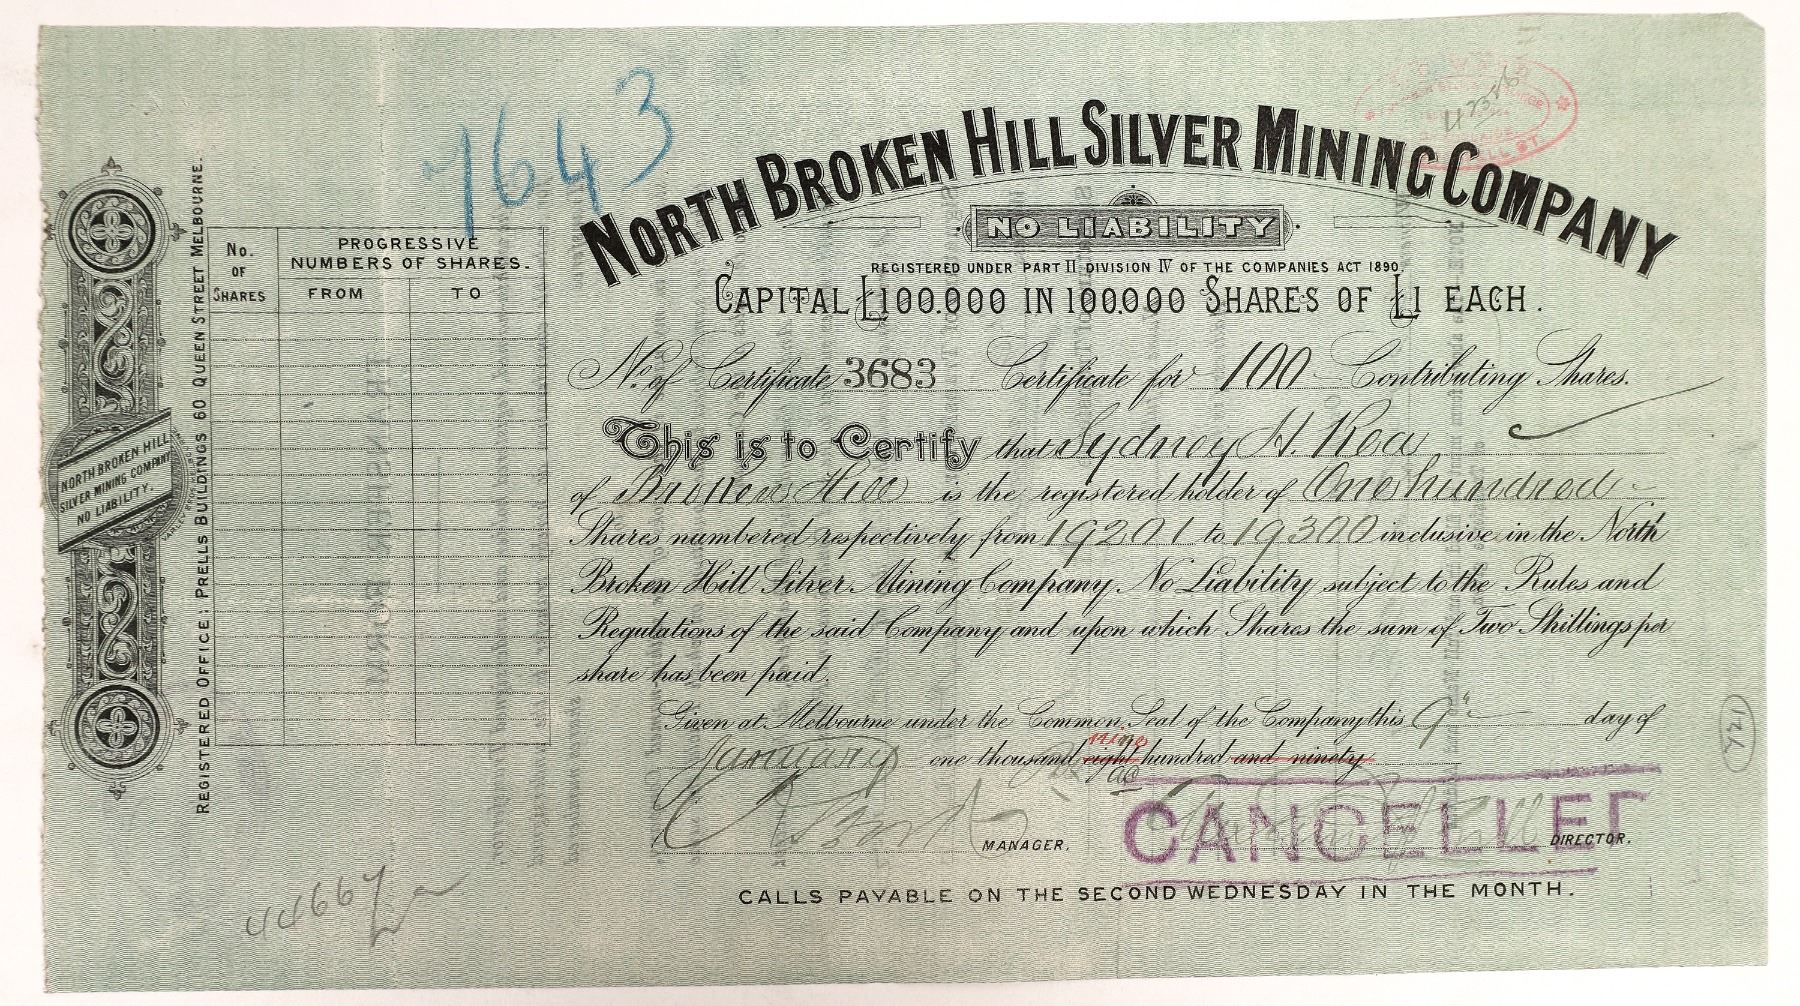 7643
NORTH BROKEN HILL SILVER MINING COMPANY
NO LIABILITY
REGISTERED UNDER PART II DIVISION IV OF THE COMPANIES ACT 1890.
CAPITAL £100.000 IN 100.000 SHARES OF £1 EACH.
No. of Certificate 3683 Certificate for 100 Contributing Shares.
This is to Certify that Sydney H. Rea
of Broken Hill is the registered holder of One hundred
Shares numbered respectively from 19201 to 19300 inclusive in the North
Broken Hill Silver Mining Company. No Liability subject to the Rules and
Regulations of the said Company and upon which Shares the sum of Two Shillings per
share has been paid.
Given at Melbourne under the Common Seal of the Company this 9th day of
nine
January one thousand eight hundred and ninety
MANAGER.
CANCELLED
DIRECTOR.
CALLS PAYABLE ON THE SECOND WEDNESDAY IN THE MONTH.
No. OF SHARES
PROGRESSIVE NUMBERS OF SHARES.
FROM
TO
REGISTERED OFFICE: PRELLS BUILDINGS 60 QUEEN STREET MELBOURNE.
NORTH BROKEN HILL
SILVER MINING COMPANY
NO LIABILITY.
44667
122